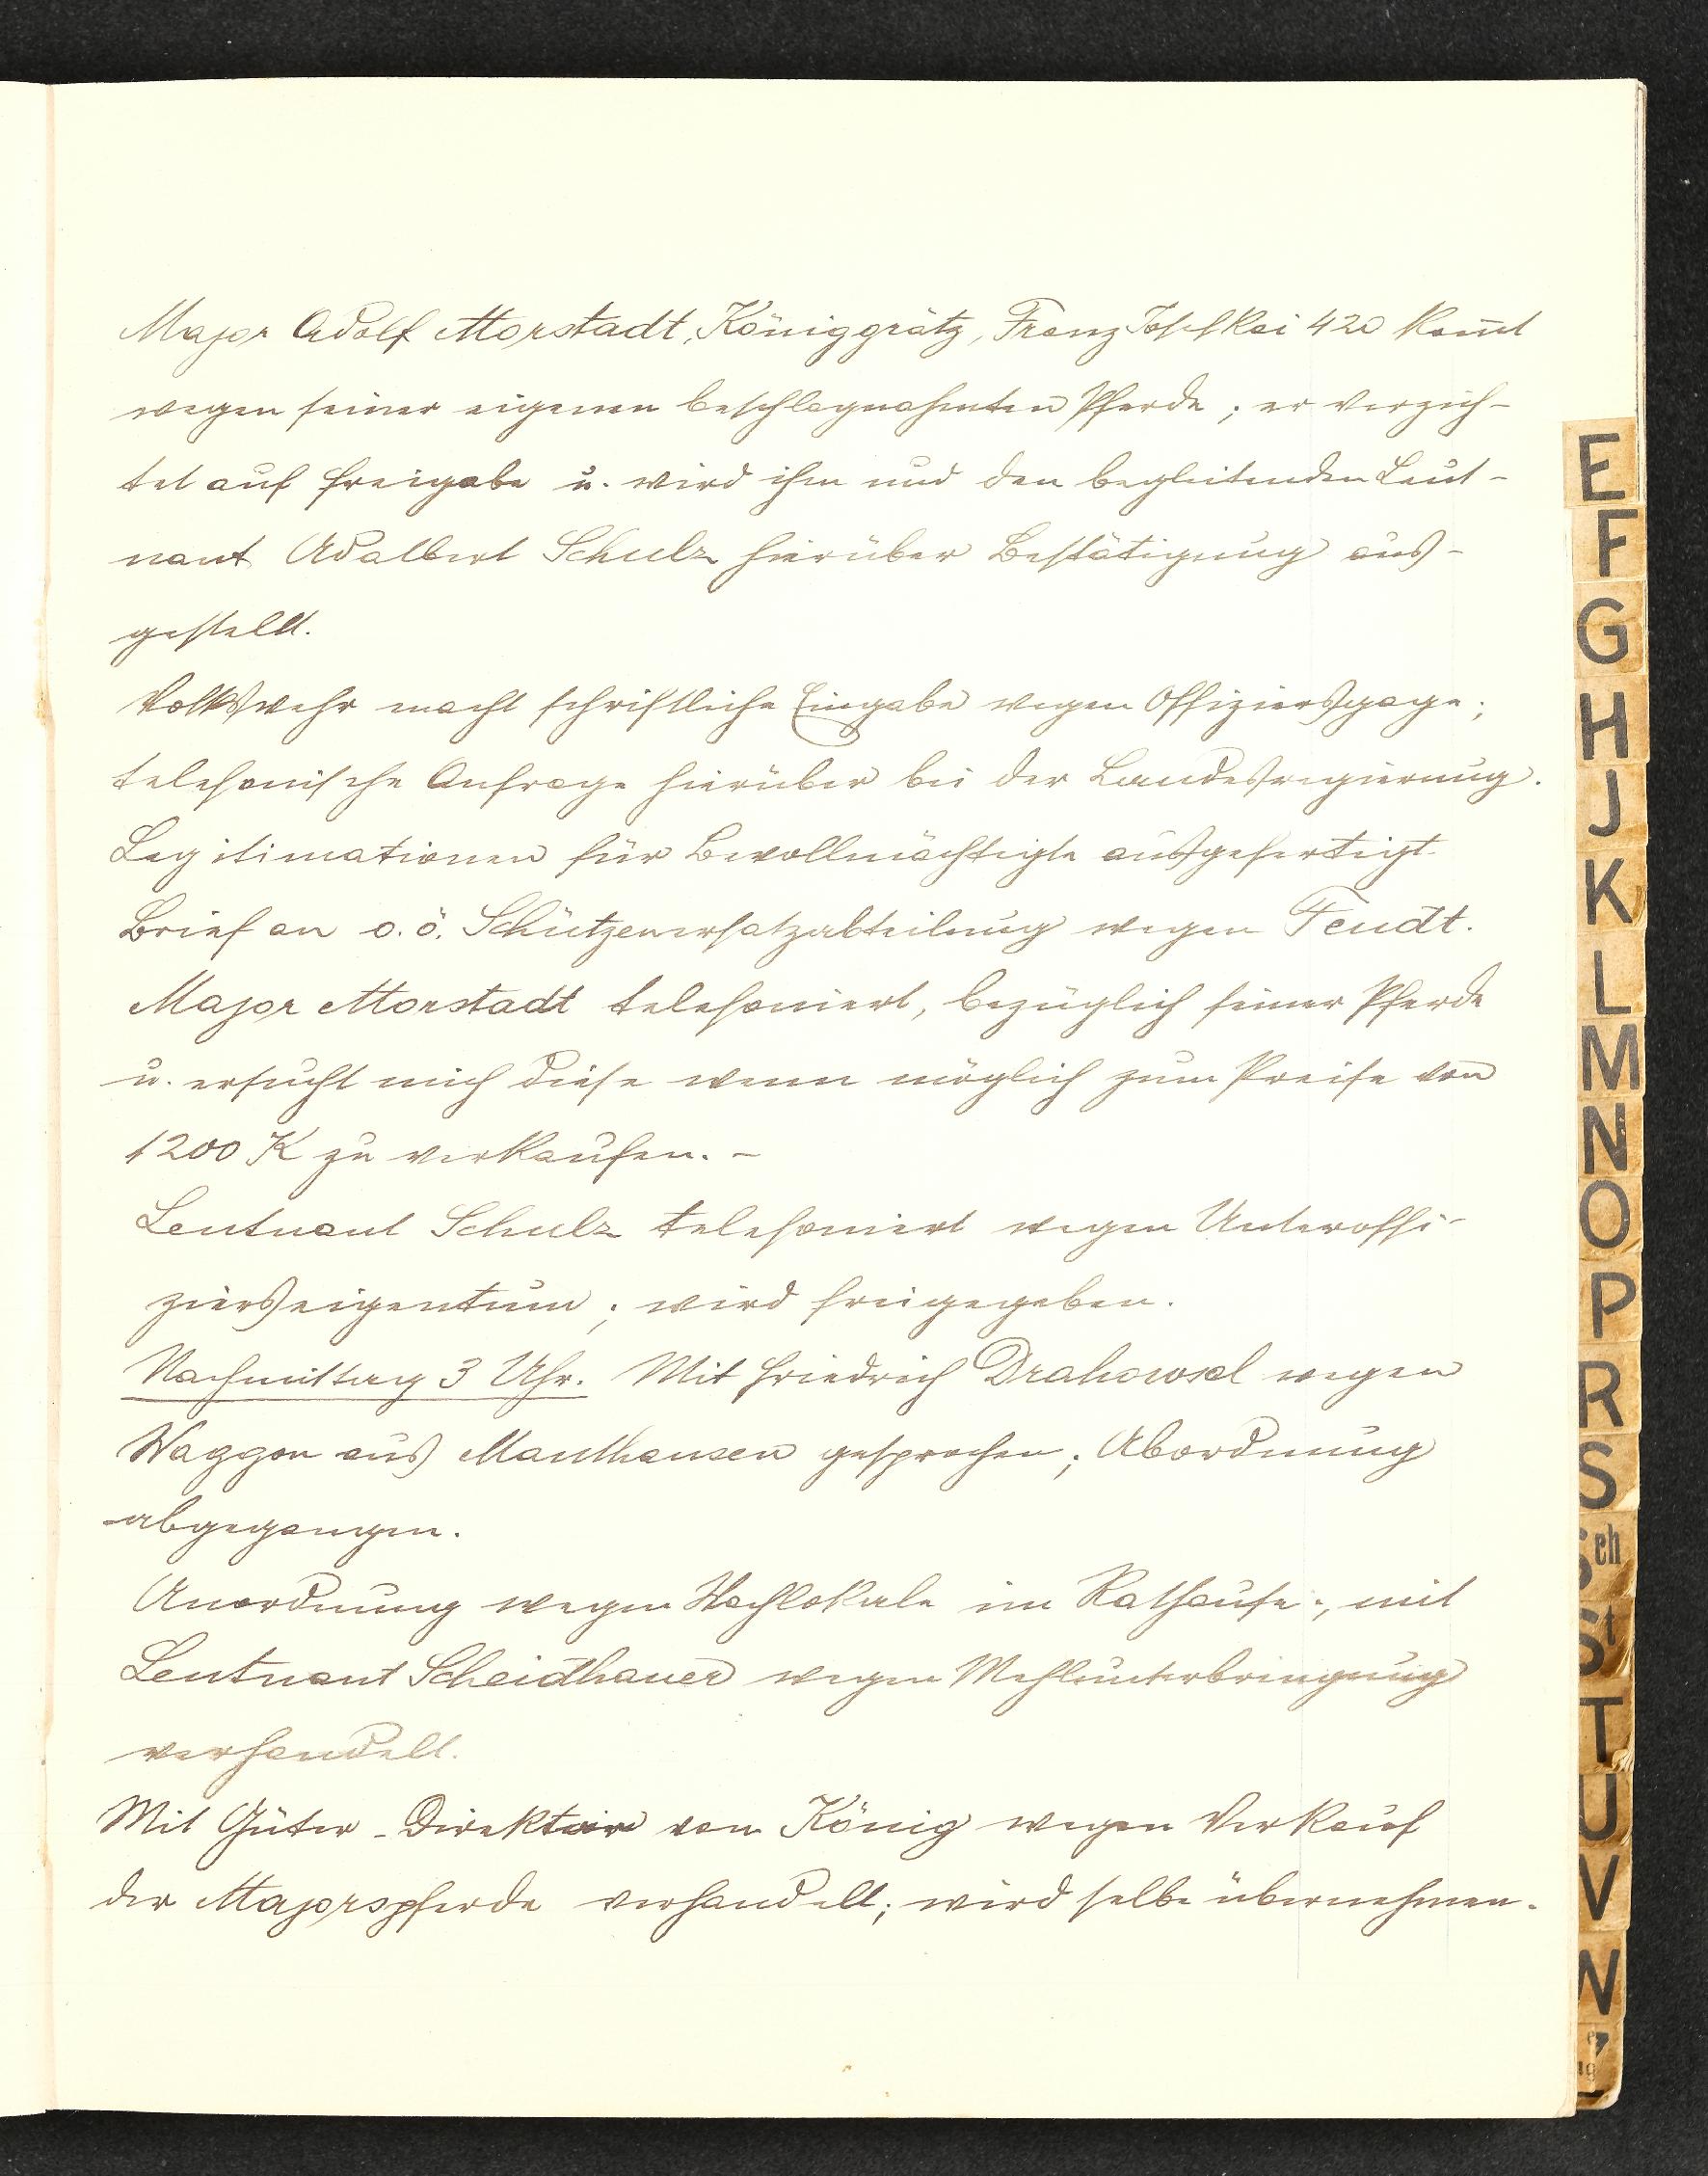 Major Adolf Morstadt, Königgrätz, Franz Josefkai 420 kom̄t
wegen seiner eigenen beschlagnahmten Pferde; er verzich-
tet auf Freigabe u. wird ihm und den begleitenden Leut-
nant Adalbert Schulz hierüber Bestätigung aus-
gestellt.
Volkswehr macht schriftliche Eingabe wegen Offiziersgage;
telefonische Anfrage hierüber bei der Landesregierung.
Legitimationen für Bevollmächtigte ausgefertigt.
Brief an o.ö. Schützenersatzabteilung wegen Fendt.
Major Morstadt telefoniert, bezüglich seiner Pferde
u. ersucht mich diese wenn möglich zum Preise von
1200 K zu verkaufen. -
Leutnant Schulz telefoniert wegen Unteroffi-
zierseigentum; wird freigegeben.
Nachmittag 3 Uhr. Mit Friedrich Drahowsel wegen
Waggon aus Mauthausen gesprochen; Abordnung
abgegangen.
Anordnung wegen Wachlokale im Rathause; mit
Leutnant Scheidhauer wegen Mehlunterbringung
verhandelt.
Mit Güter-Direktor von König wegen Verkauf
der Majorspferde verhandelt; wird selbe übernehmen.
E
F
G
H
J
K
L
M
N
O
P
R
S
Sch
St
T
U
V
W